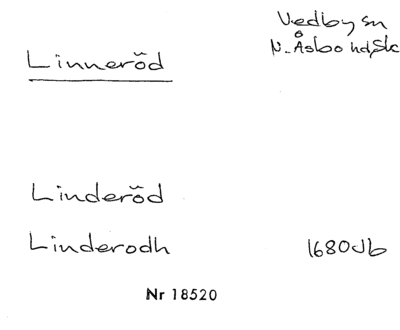 Vedby sn
Linneröd
N. Åsbo hd, Sk
Linderöd
Linderodh 1680 Jb
Nr 18520